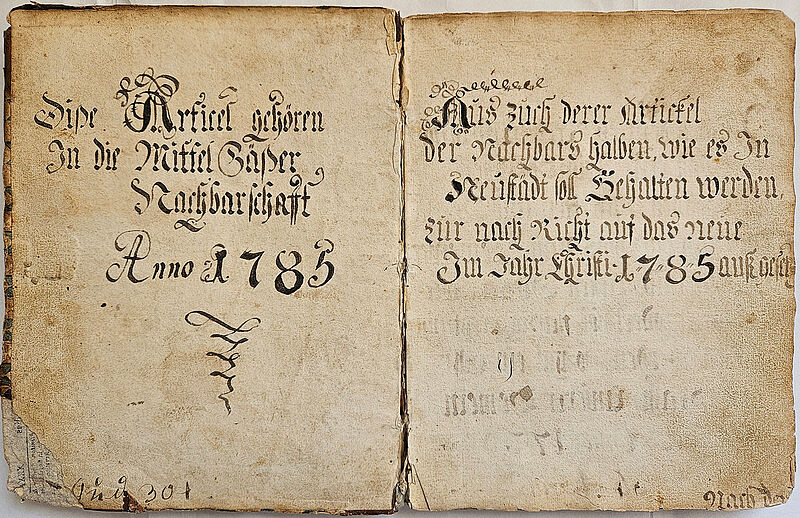 Diße Articel gehören
In die Mittel Gäßer
Nachbarschafft
Anno 1785
301
Aus zuch derer Artickel
der Nachbars halben, wie es In
Neustädt soll Gehalten werden,
zur nach Richt auf das neue
Im Jahr Christi 1785 aufs gesetz
Nach de